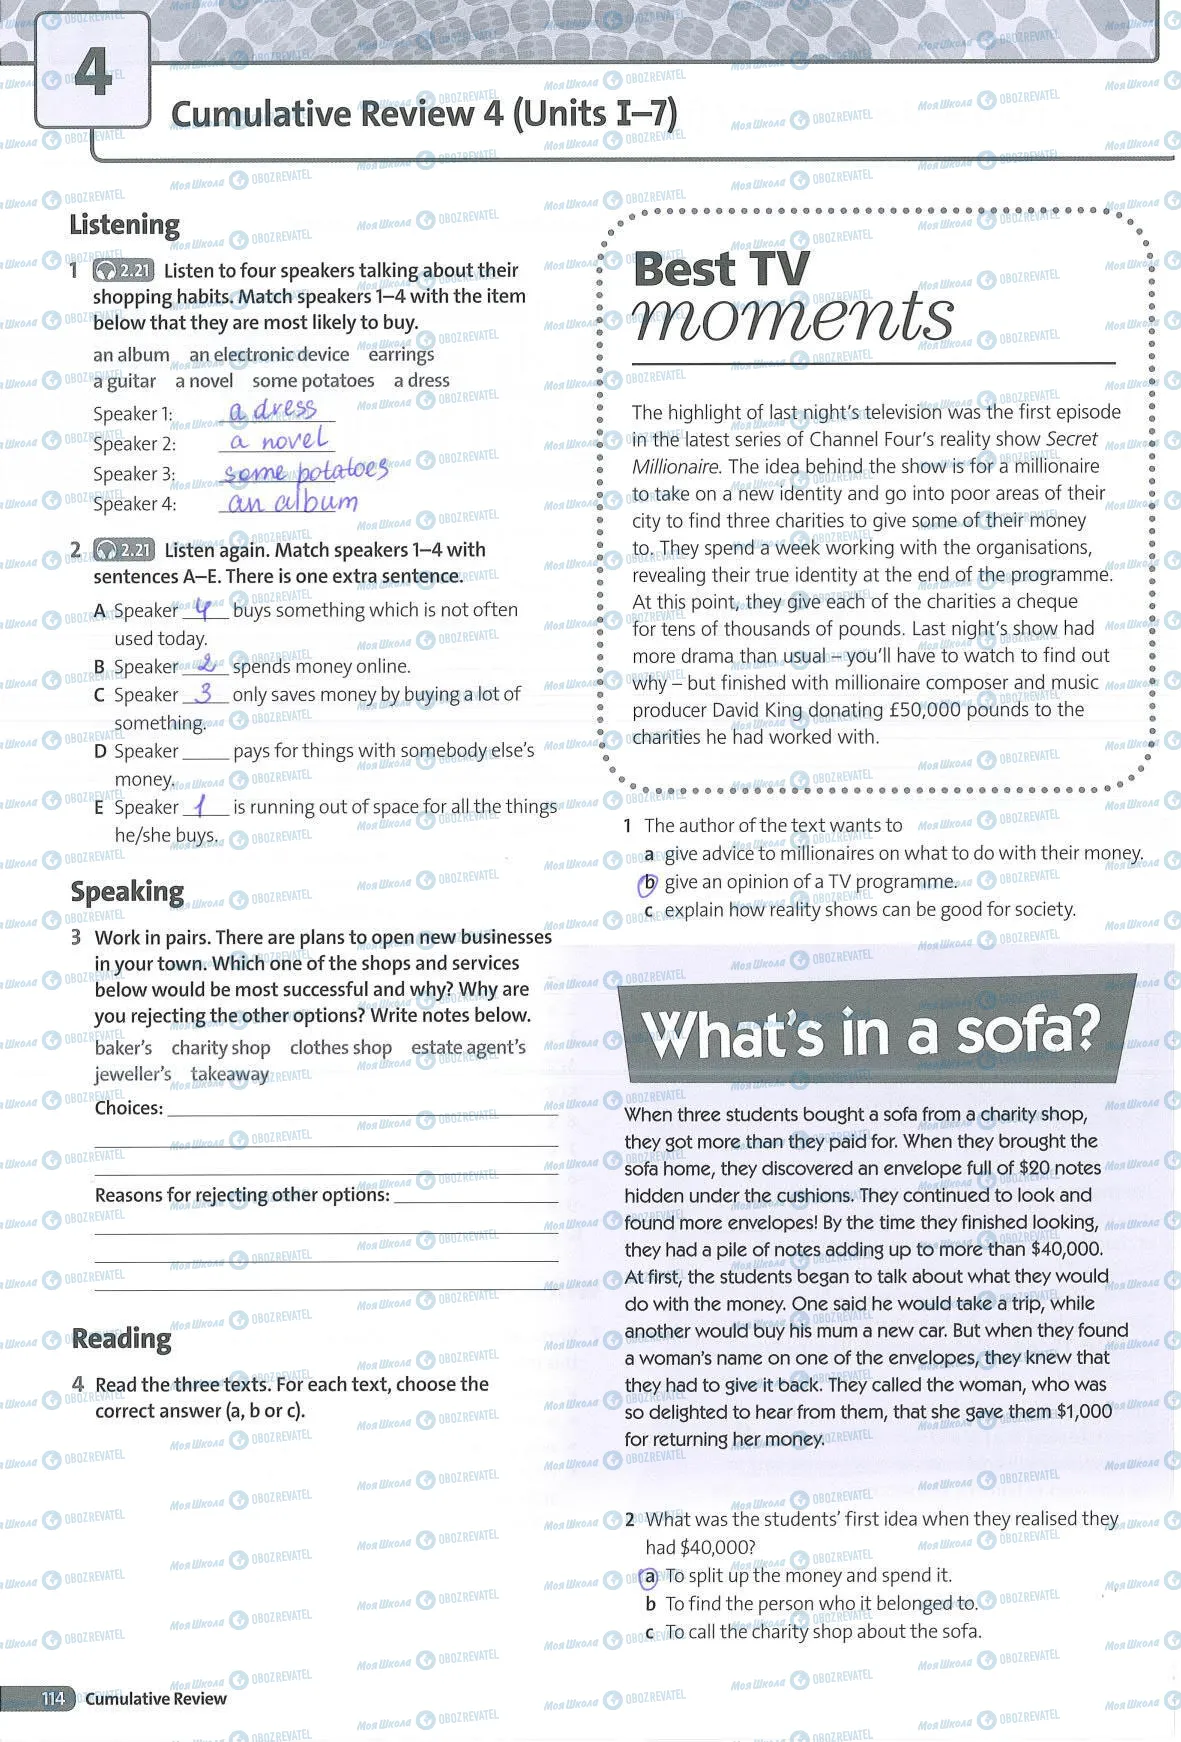 4
Cumulative Review 4 (Units I–7)
Listening
1 2.21 Listen to four speakers talking about their
shopping habits. Match speakers 1–4 with the item
below that they are most likely to buy.
an album an electronic device earrings
a guitar a novel some potatoes a dress
Speaker 1: a dress
Speaker 2: a novel
Speaker 3: some potatoes
Speaker 4: an album
2 2.21 Listen again. Match speakers 1–4 with
sentences A–E. There is one extra sentence.
A Speaker 4 buys something which is not often
used today.
B Speaker 2 spends money online.
C Speaker 3 only saves money by buying a lot of
something.
D Speaker ____ pays for things with somebody else's
money.
E Speaker 1 is running out of space for all the things
he/she buys.
Speaking
3 Work in pairs. There are plans to open new businesses
in your town. Which one of the shops and services
below would be most successful and why? Why are
you rejecting the other options? Write notes below.
baker's charity shop clothes shop estate agent's
jeweller's takeaway
Choices:
Reasons for rejecting other options:
Reading
4 Read the three texts. For each text, choose the
correct answer (a, b or c).
Best TV
moments
The highlight of last night's television was the first episode
in the latest series of Channel Four's reality show Secret
Millionaire. The idea behind the show is for a millionaire
to take on a new identity and go into poor areas of their
city to find three charities to give some of their money
to. They spend a week working with the organisations,
revealing their true identity at the end of the programme.
At this point, they give each of the charities a cheque
for tens of thousands of pounds. Last night's show had
more drama than usual – you'll have to watch to find out
why – but finished with millionaire composer and music
producer David King donating £50,000 pounds to the
charities he had worked with.
1 The author of the text wants to
a give advice to millionaires on what to do with their money.
b give an opinion of a TV programme.
c explain how reality shows can be good for society.
What's in a sofa?
When three students bought a sofa from a charity shop,
they got more than they paid for. When they brought the
sofa home, they discovered an envelope full of $20 notes
hidden under the cushions. They continued to look and
found more envelopes! By the time they finished looking,
they had a pile of notes adding up to more than $40,000.
At first, the students began to talk about what they would
do with the money. One said he would take a trip, while
another would buy his mum a new car. But when they found
a woman's name on one of the envelopes, they knew that
they had to give it back. They called the woman, who was
so delighted to hear from them, that she gave them $1,000
for returning her money.
2 What was the students' first idea when they realised they
had $40,000?
a To split up the money and spend it.
b To find the person who it belonged to.
c To call the charity shop about the sofa.
114 Cumulative Review
Моя Школа OBOZREVATEL